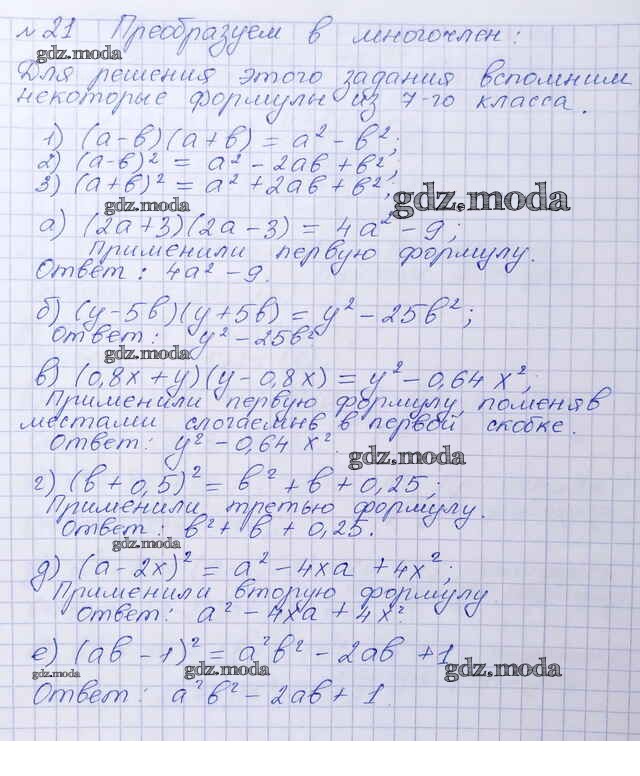 №21 Преобразуем в многочлен:
gdz.moda
Для решения этого задания вспомним
некоторые формулы из 7-го класса.
1) (a-b)(a+b) = a² - b²;
2) (a-b)² = a² - 2ab + b²;
3) (a+b)² = a² + 2ab + b²;
gdz.moda
gdz.moda
а) (2a+3)(2a-3) = 4a² - 9;
Применили первую формулу.
Ответ: 4a² - 9.
б) (y-5b)(y+5b) = y² - 25b²;
Ответ: y² - 25b²
gdz.moda
в) (0,8x+y)(y-0,8x) = y² - 0,64x²;
Применили первую формулу, поменяв
местами слогаемыв в первой скобке.
Ответ: y² - 0,64x²
gdz.moda
г) (b+0,5)² = b² + b + 0,25;
Применили третью формулу.
Ответ: b² + b + 0,25.
gdz.moda
д) (a-2x)² = a² - 4xa + 4x²;
Применили вторую формулу
Ответ: a² - 4xa + 4x²
е) (ab-1)² = a²b² - 2ab + 1
gdz.moda
gdz.moda
gdz.moda
Ответ: a²b² - 2ab + 1